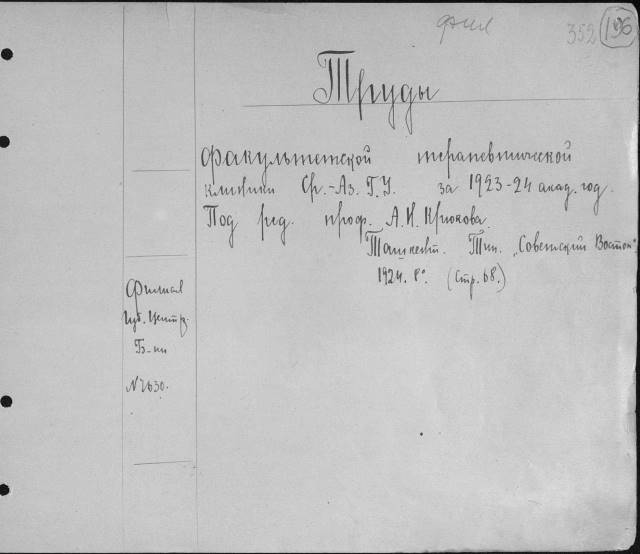 фил 352 196
Труды
факультетской терапевтической
клиники Ср.-Аз. Г. У. за 1923-24 акад. год.
Под ред. проф. А. И. Крюкова.
Ташкент. Тип. „Советский Восток“,
1924. 8°. (Стр. 68.)
Филиал
Цб. Центр.
Б-ки
№ 2630.